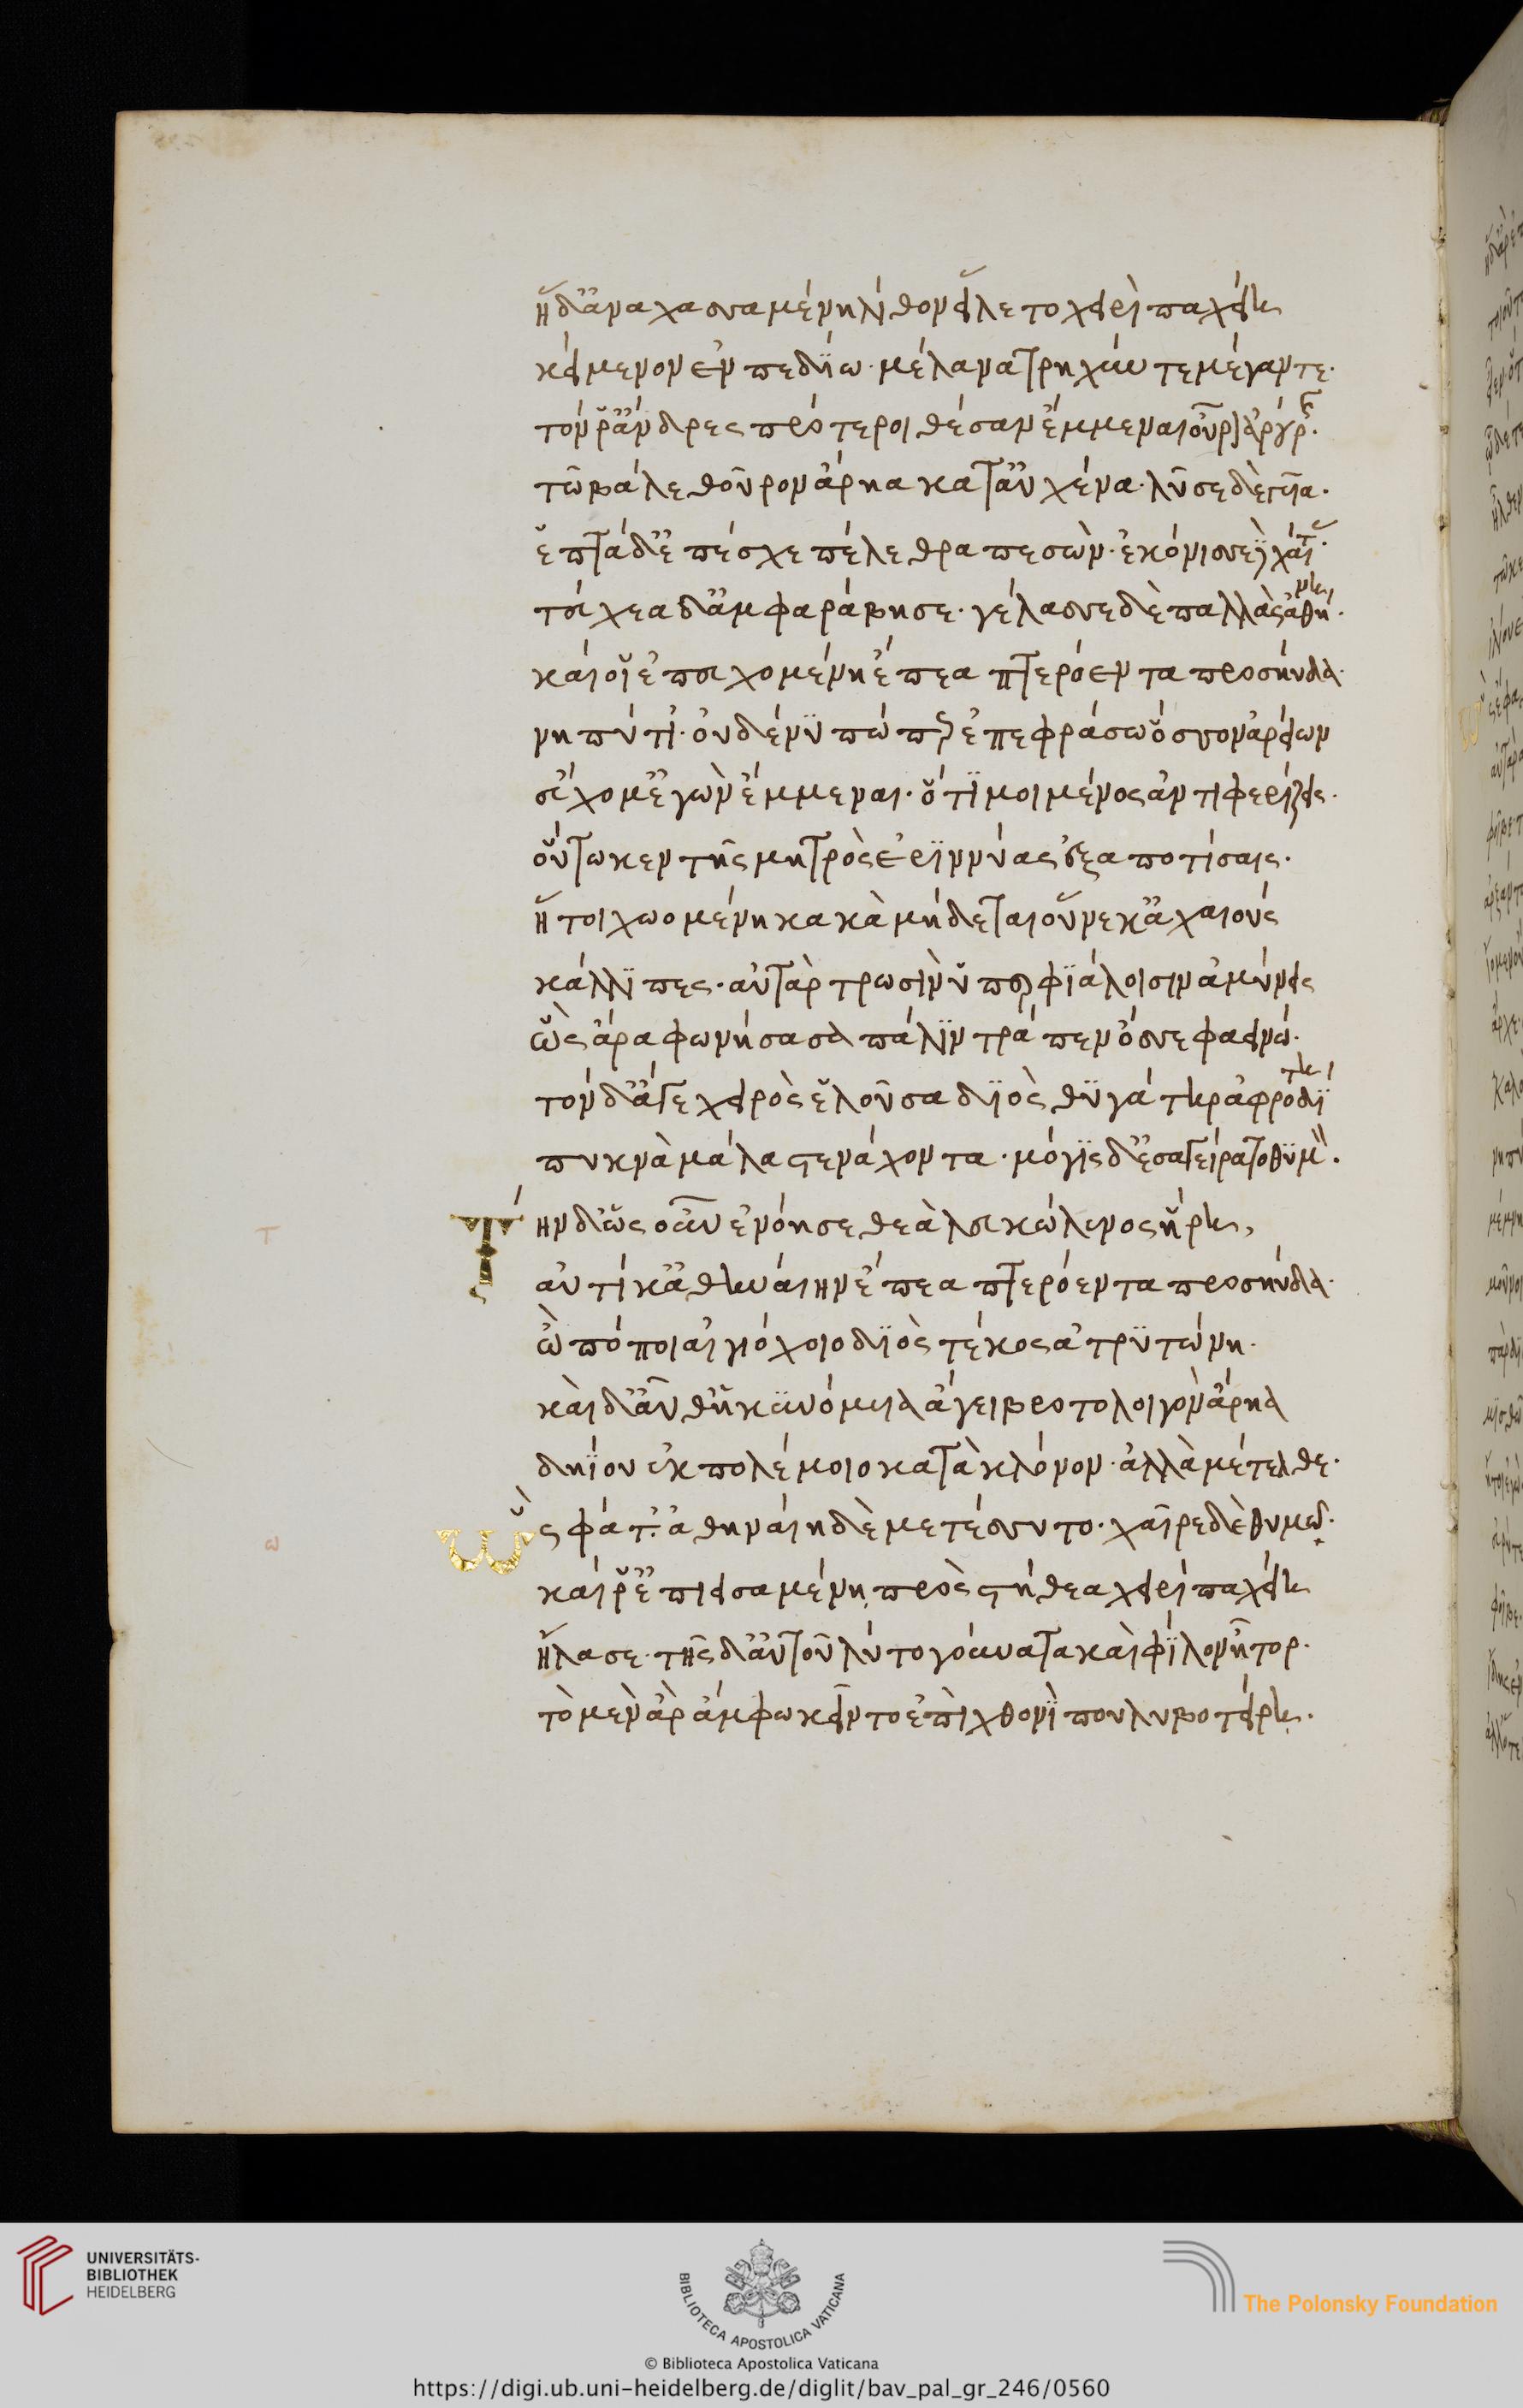 ἡ δ' ἀναχασσαμένη λίθον εἵλετο χειρὶ παχείη
κείμενον ἐν πεδίω· μέλανα τρηχύν τε μέγαν τε·
τόν ῥ' ἄνδρες πρότεροι θέσαν ἔμμεναι οὖρον ἀρούρης·
τῶ βάλε θοῦρον ἄρηα κατ' αὐχένα· λῦσε δὲ γυῖα·
ἑπτὰ δ' ἐπέσχε πέλεθρα πεσών· ἐκόνισσε δὲ χαίτας·
τεύχεα δ' ἀμφαράβησε· γέλασσε δὲ παλλὰς ἀθήνη·
καί οἱ ἐπευχομένη ἔπεα πτερόεντα προσηύδα·
νηπύτι'· οὐδέ νϋ πώ περ ἐπεφράσω ὅσσον ἀρείων
εὔχομ' ἐγὼν ἔμμεναι· ὅτϊ μοι μένος ἀντιφερίζεις·
οὕτω κεν τῆς μητρὸς ἐρϊννύας ἐξαποτίσαις·
ἥ τοι χωομένη κακὰ μήδεται οὕνεκ' ἀχαιοὺς
κάλλϊπες· αὐτὰρ τρωσὶν ὑπερφϊάλοισιν ἀμύνεις
ὣς ἄρα φωνήσασα πάλϊν τράπεν ὄσσε φαεινώ·
τὸν δ' ἄγε χειρὸς ἑλοῦσα δϊὸς θϋγάτηρ ἀφροδίτη
πυκνὰ μάλα στενάχοντα· μόγϊς δ' ἐσαγείρατο θϋμόν·
Τὴν δ' ὡς οὖν ἐνόησε θεὰ λευκώλενος ἥρη,
αὐτίκ' ἀθηναίην ἔπεα πτερόεντα προσηύδα·
ὢ πόποι αἰγιόχοιο δϊὸς τέκος ἀτρϋτώνη·
καὶ δ' αὖθ' ἡ κϋνόμυια ἄγει βροτολοιγὸν ἄρηα
δηΐου ἐκ πολέμοιο κατὰ κλόνον· ἀλλὰ μέτελθε·
Ὣς φάτ'· ἀθηναίη δὲ μετέσσυτο· χαῖρε δὲ θυμῶ·
καί ῥ' ἐπιεισαμένη πρὸς στήθεα χειρὶ παχείη
ἤλασε· τῆς δ' αὐτοῦ λύτο γούνατα καὶ φΐλον ἦτορ·
τὼ μὲν ἄρ' ἄμφω κεῖντο ἐπὶ χθονῒ πουλυβοτείρη·
τ
ω
UNIVERSITÄTS-
BIBLIOTHEK
HEIDELBERG
BIBLIOTECA APOSTOLICA VATICANA
The Polonsky Foundation
© Biblioteca Apostolica Vaticana
https://digi.ub.uni-heidelberg.de/diglit/bav_pal_gr_246/0560